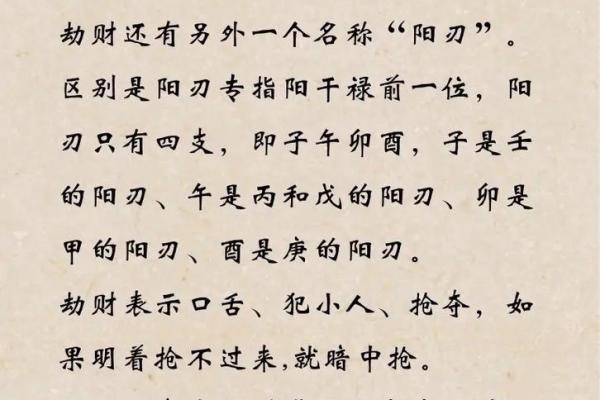 劫财还有另外一个名称“阳刃”。
区别是阳刃专指阳干禄前一位，阳
刃只有四支，即子午卯酉，子是壬
的阳刃、午是丙和戊的阳刃、卯是
甲的阳刃、酉是庚的阳刃。
劫财表示口舌、犯小人、抢夺，如
果明着抢不过来,就暗中抢。